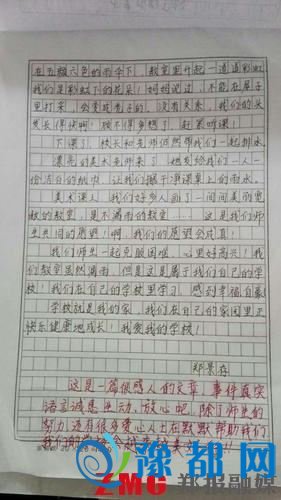 在五颜六色的雨伞下，教室里升起一道道彩虹
我们是彩虹下的花朵！妈妈说过：不能在屋子
里打伞，会变成秃子的。没有关系，我们的头
发长得快啊！顾不得多想了，赶紧听课！
下课了，校长和老师依然带我们一起排水
漂亮的美术老师来了，她发给我们一人一
份洁白的纸巾，让我们擦干净课桌上的雨水。
美术课上，我们好多人画了一间间美丽宽
敞的教室，是不漏雨的教室……这是我们师
生共同的愿望！啊，我们的愿望会成真！
我们师生一起克服困难，心里好高兴！我
们教室虽然漏雨，但是这是属于我们自己的学
校！我们在自己的学校里学习，感到幸福自豪！
学校就是我的家，我们在自己的家园里正
快乐健康地成长！我爱我的学校！
郑景存
这是一篇很感人的文章，事件真实
语言诚恳生动，放心吧，除了师生的
努力还有很多爱心人士在默默帮助我们
我们的
豫都网
ZMG